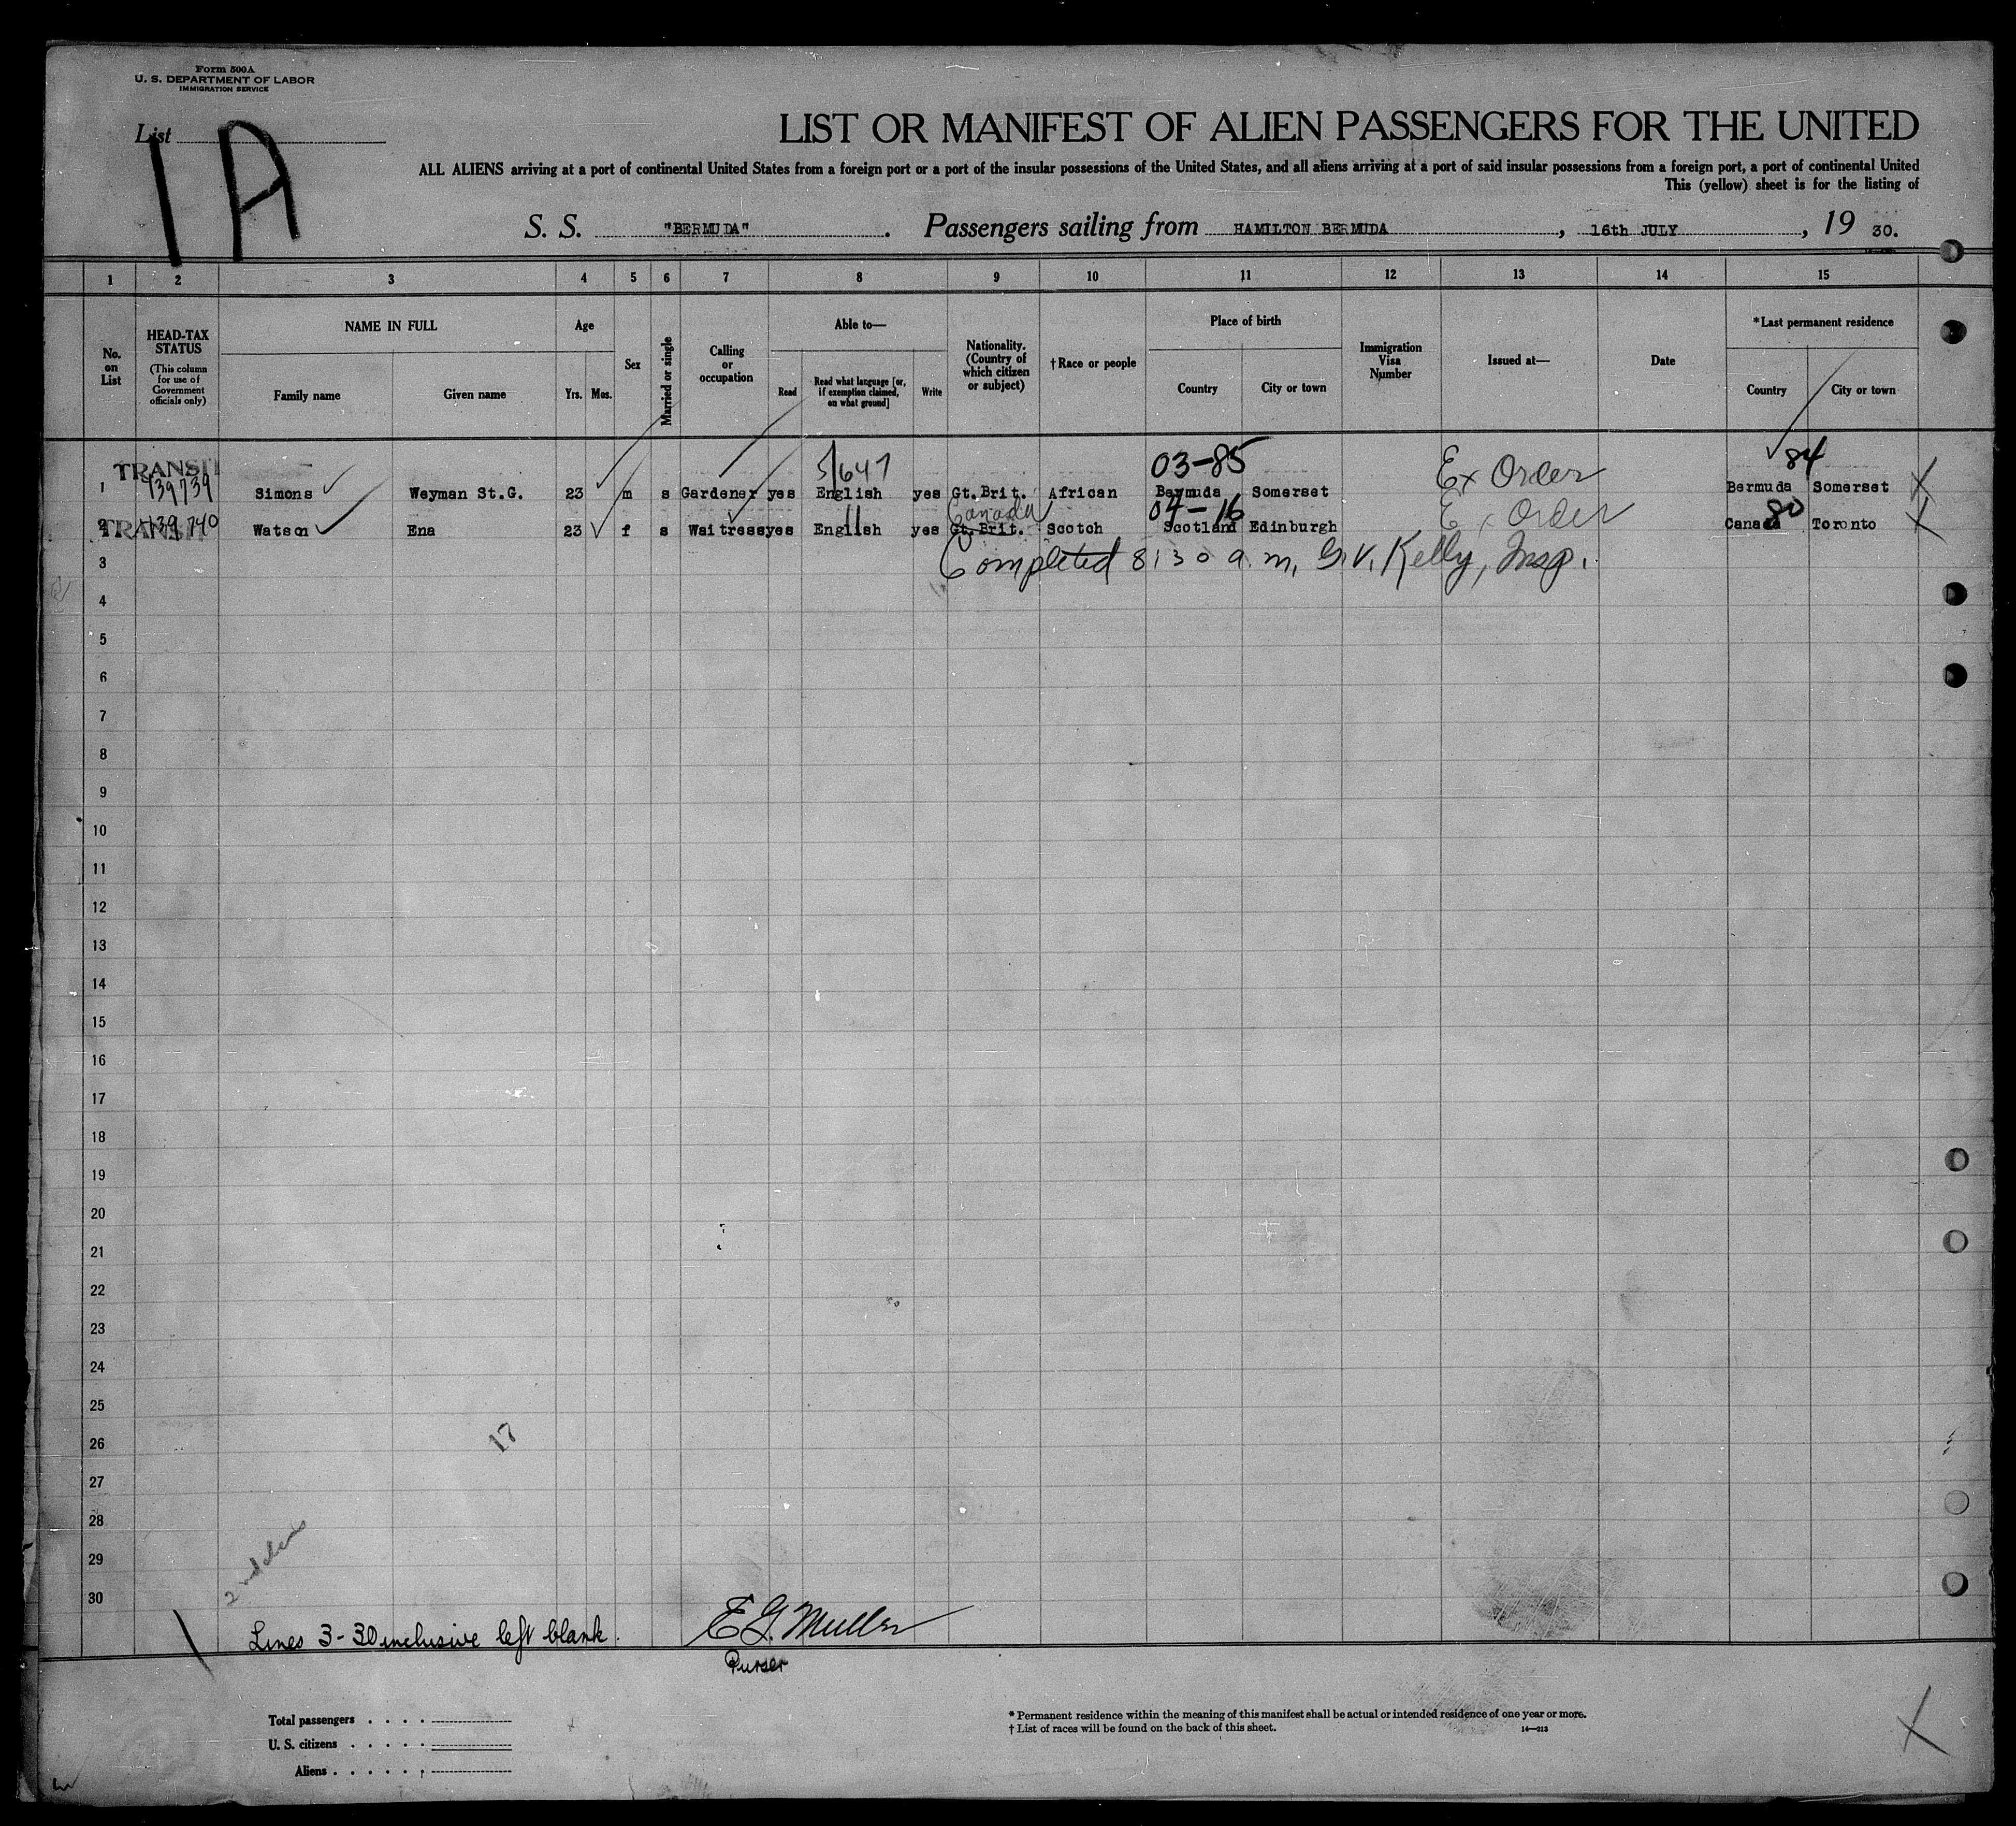 Form 500A
U. S. DEPARTMENT OF LABOR
IMMIGRATION SERVICE
List
1 A
LIST OR MANIFEST OF ALIEN PASSENGERS FOR THE UNITED
ALL ALIENS arriving at a port of continental United States from a foreign port or a port of the insular possessions of the United States, and all aliens arriving at a port of said insular possessions from a foreign port, a port of continental United
This (yellow) sheet is for the listing of
S. S. "BERMUDA" . Passengers sailing from HAMILTON BERMUDA , 16th JULY , 19 30.
1 2 3 4 5 6 7 8 9 10 11 12 13 14 15
No. on List
HEAD-TAX STATUS
(This column for use of Government officials only)
NAME IN FULL
Family name
Given name
Age
Yrs. Mos.
Sex
Married or single
Calling or occupation
Able to—
Read
Read what language [or, if exemption claimed, on what ground]
Write
Nationality. (Country of which citizen or subject)
†Race or people
Place of birth
Country
City or town
Immigration Visa Number
Issued at—
Date
*Last permanent residence
Country
City or town
TRANSIT 5/647 03-85 84
1 139739 Simons Weyman St.G. 23 m s Gardener yes English yes Gt.Brit. African Bermuda Somerset Ex Order Bermuda Somerset X
Canada 04-16 80
2 TRANSIT 139740 Watson Ena 23 f s Waitress yes English 11 yes Gt.Brit. Scotch Scotland Edinburgh Ex Order Canada Toronto X
3 Completed 8:30 a.m, G.V. Kelly, Insp.
4
5
6
7
8
9
10
11
12
13
14
15
16
17
18
19
20
21
22
23
24
25
26
17
27
28
29
30
Lines 3-30 inclusive left blank. E G. Muller
Purser
Total passengers . . . .
U. S. citizens . . . . .
Aliens . . . . . .
* Permanent residence within the meaning of this manifest shall be actual or intended residence of one year or more.
† List of races will be found on the back of this sheet. 14—213
X